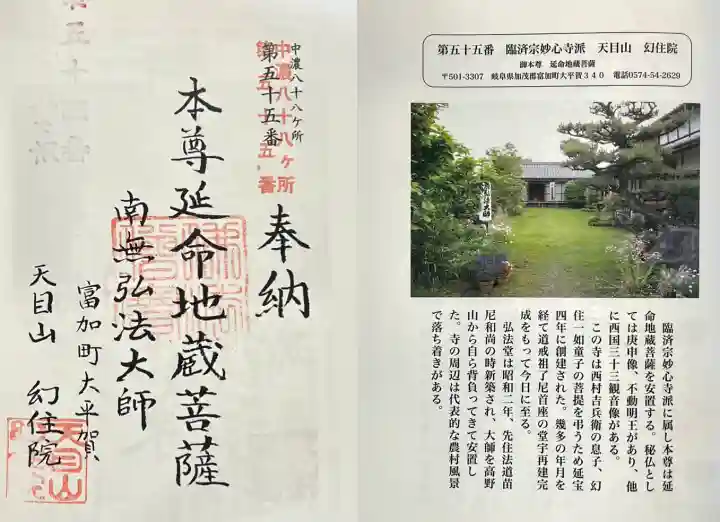 中濃八十八ヶ所
第五十五番
中濃八十八ヶ所
第五十五番
奉納
本尊延命地蔵菩薩
南無弘法大師
富加町大平賀
天目山 幻住院
天目山
第五十五番 臨済宗妙心寺派 天目山 幻住院
御本尊 延命地蔵菩薩
〒501-3307 岐阜県加茂郡富加町大平賀340 電話0574-54-2629
臨済宗妙心寺派に属し本尊は延
命地蔵菩薩を安置する。秘仏とし
ては庚申像、不動明王があり、他
に西国三十三観音像がある。
この寺は西村吉兵衛の息子、幻
住一如童子の菩提を弔うため延宝
四年に創建された。幾多の年月を
経て道戒祖了尼首座の堂宇再建完
成をもって今日に至る。
弘法堂は昭和二年、先住法道苗
尼和尚の時新築され、大師を高野
山から自ら背負ってきて安置し
た。寺の周辺は代表的な農村風景
で落ち着きがある。